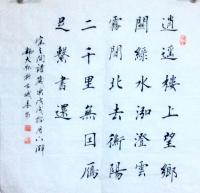 逍遙樓上望鄉
關綠水泓澄雲
霧間北去衡陽
二千里無因雁
足繫書還
宋之問詩